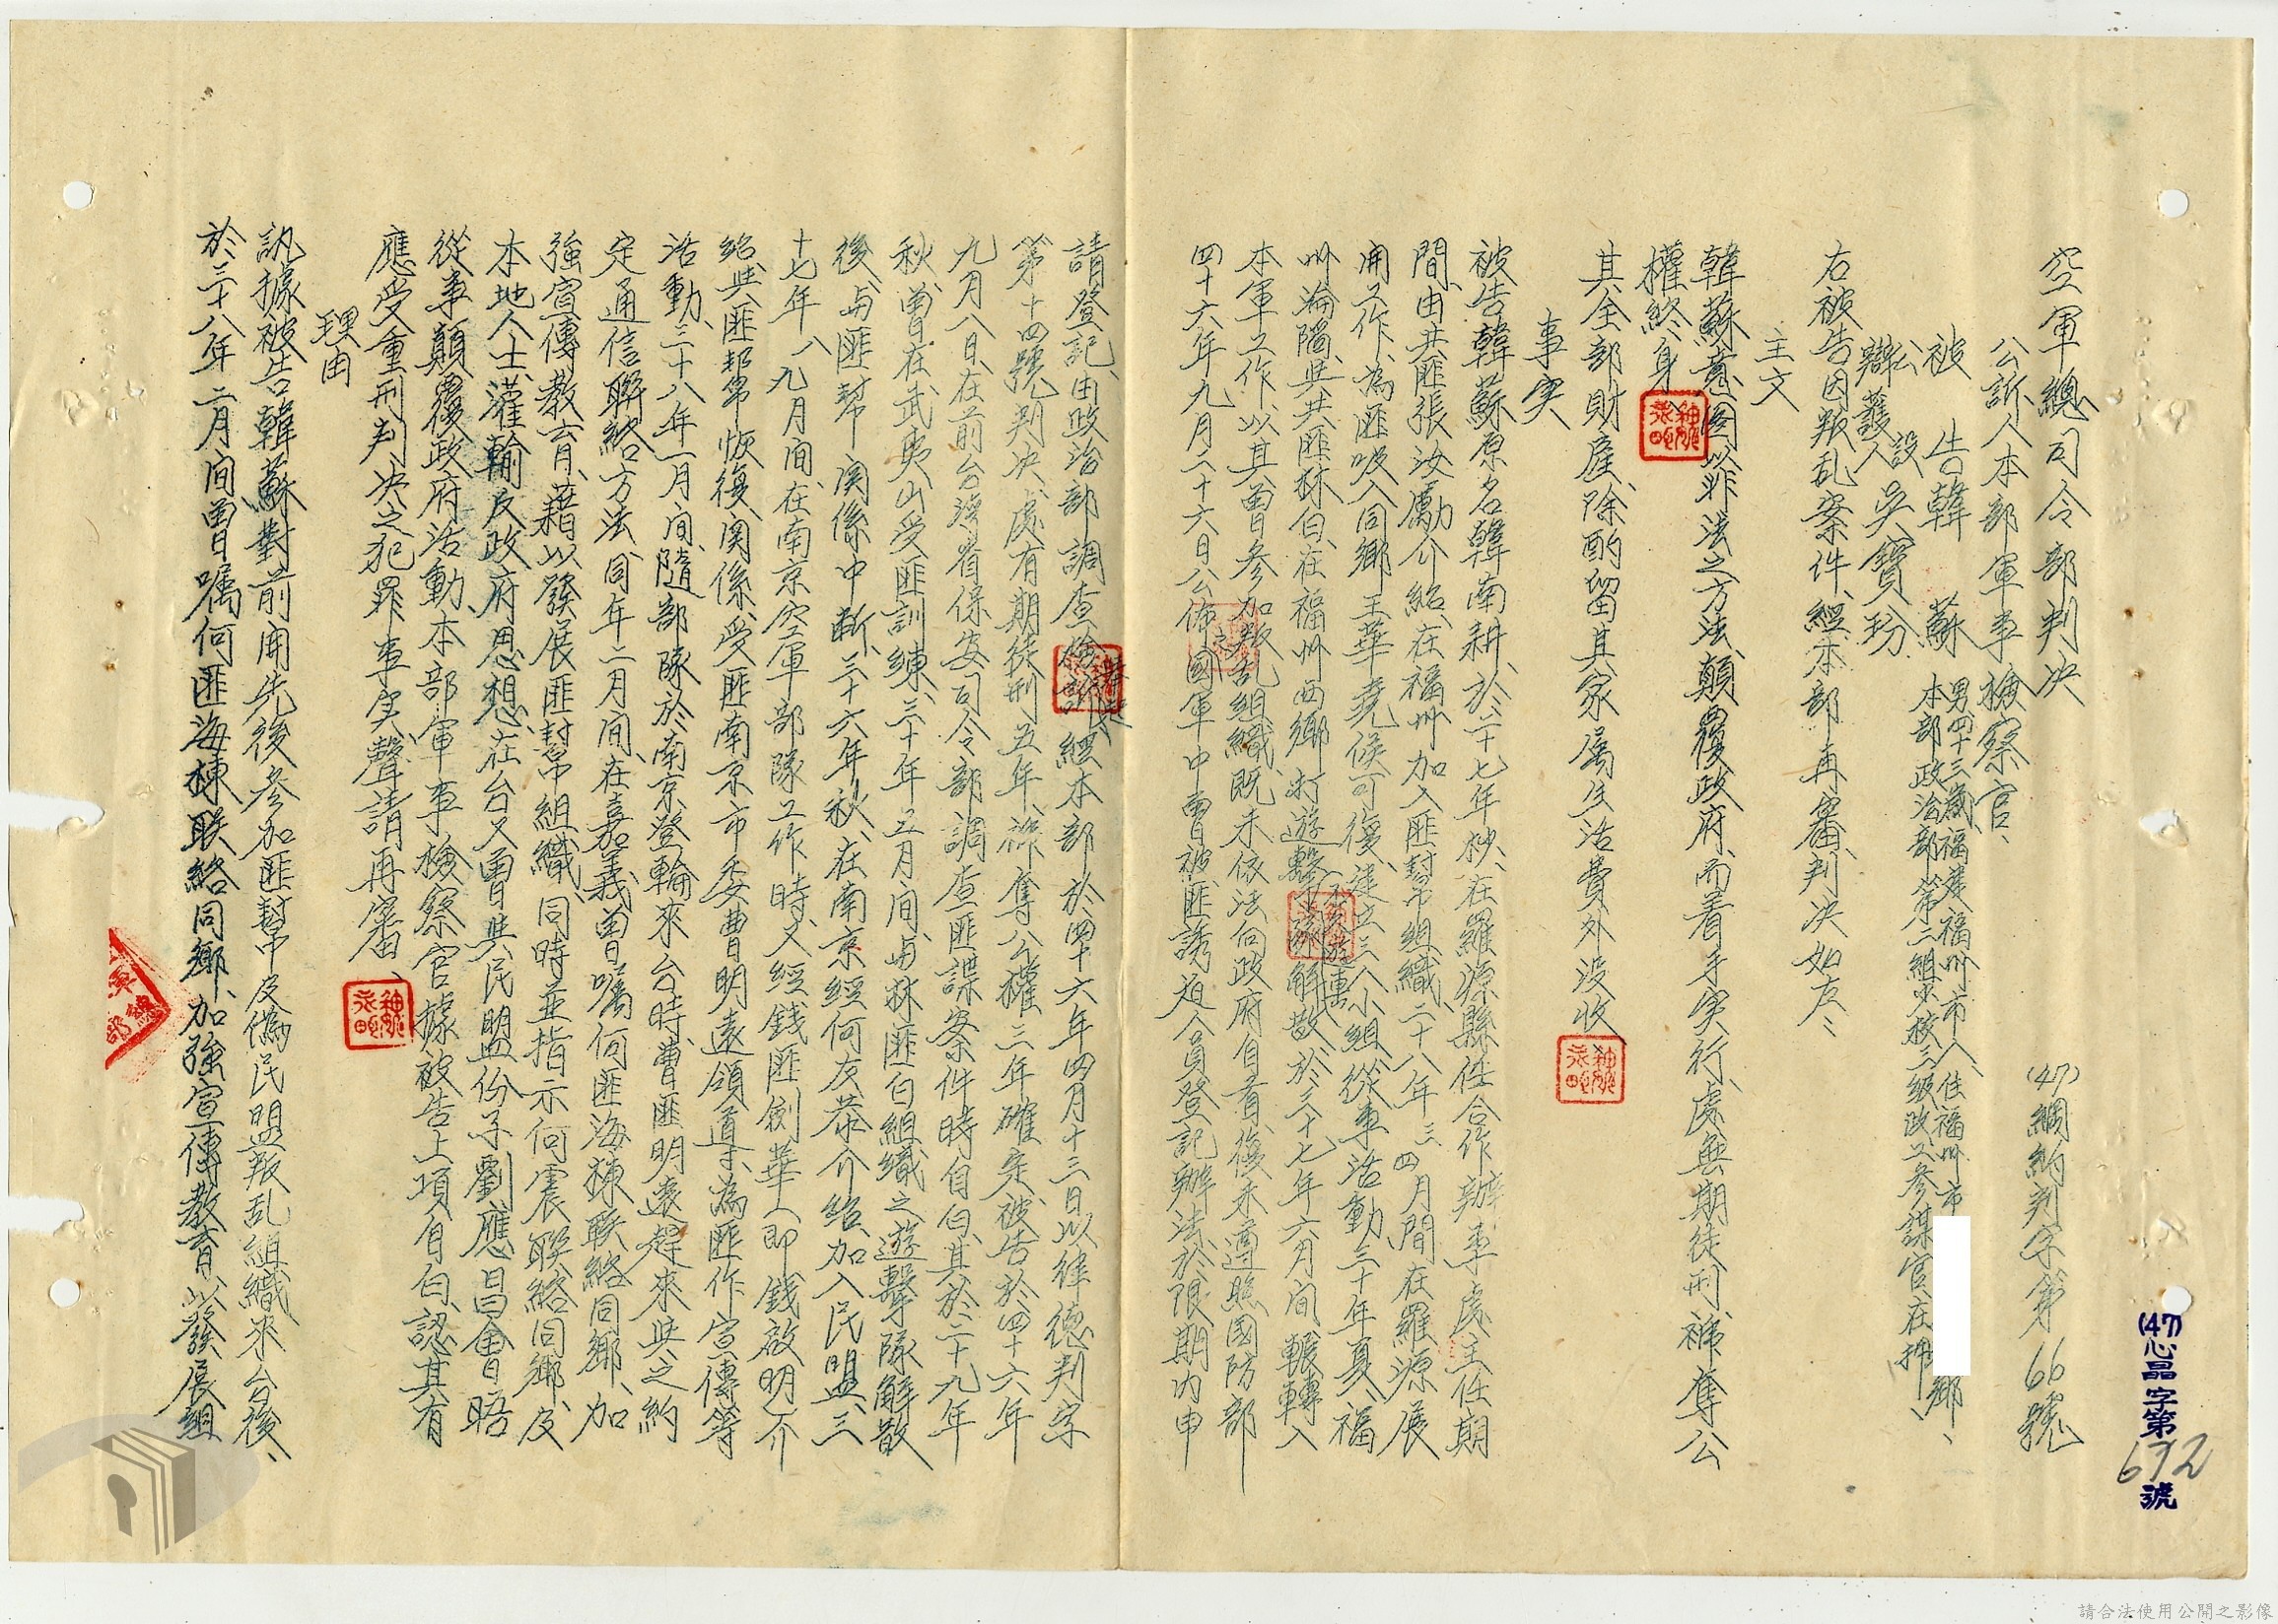 (47)心晶字第672號
空軍總司令部判決
(47)綱約判字第66號
公訴人本部軍事檢察官、
被告韓蘇
男四十三歲福建福州市人住福州市
鄉、
本部政治部第二組少校三級政工參謀官在押、
公設
辯護人吳寶玢
右被告因叛乱案件、經本部再審、判决如左、
主文
韓蘇意圖以非法之方法、顛覆政府、而着手实行、處無期徒刑褫奪公
權終身、
其全部財產、除酌留其家属生活費外没收、
事实
被告韓蘇原名韓南耕、於二十七年秒、在羅源縣任合作辦事處主任期
間、由共匪張汝勵介紹、在福州加入匪幫組織、二十八年三四月間、在羅源展
開工作、為匪吸入同鄉王華堯候可復、建立三人小組、從事活動、三十年夏、福
州淪陷、與共匪林白、在福州西鄉打遊擊、解散、於三十七年六月间、輾轉入
本軍工作、以其曾參加叛乱組織、既未依法向政府自首、後未遵照國防部
四十六年九月二十六日公佈國軍中曾被匪誘迫人員登記辦法、於限期内申
請登記、由政治部調查、經本部於四十六年四月十三日以律德判字
第十四號判决處有期徒刑五年、褫奪公權三年確定、被告於四十六年
九月八日、在前台灣省保安司令部調查匪諜案件時、自白、其於二十九年
秋、曾在武夷山受匪訓練、三十年五月间、與林匪白組織之遊擊隊解散
後、與匪幫関係中斷、三十六年秋、在南京經何友恭介紹、加入民盟、三
十七年八、九月间、在南京空軍部隊工作時、又經錢匪劍華(即錢啟明)介
紹、與匪幫恢復関係、受匪南京市委曹明遠領導、為匪作宣傳等
活動、三十八年一月间、隨部隊於南京登輪來台時、曹匪明遠趕來與之約
定通信聯絡方法、同年二月间、在嘉義曾嘱何匪海棟联絡同鄉、加
強宣傳教育、藉以發展匪幫組織、同時並指示何震聯絡同鄉、及
本地人士、灌輸反政府思想、在台又曾與民盟份子劉應昌會晤
從事顛覆政府活動、本部軍事檢察官據被告上項自白、認其有
應受重刑判决之犯罪事实、聲請再審、
理由
訊據被告韓蘇對前開先後參加匪幫及偽民盟叛乱組織、來台後、
於三十八年二月间、曾嘱何匪海棟联絡同鄉、加強宣傳教育、以發展組
請合法使用公開之影像